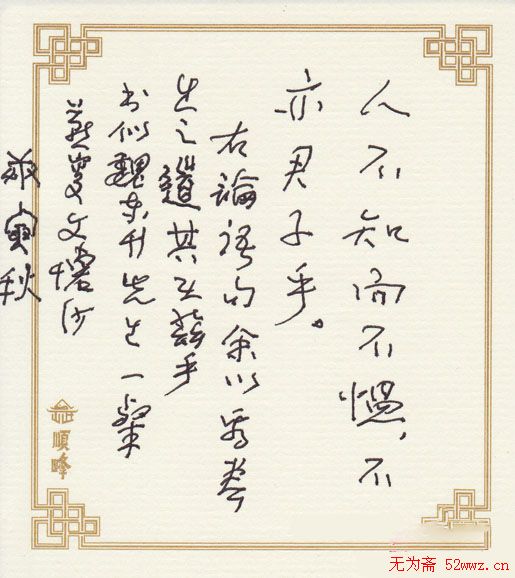 人不知而不愠,不
亦君子乎。
右論語句余以为養
生之道其在茲乎
书似魏東升先生一粲
燕叟文懷沙
寅秋
順峰
无为斋 52wwz.cn